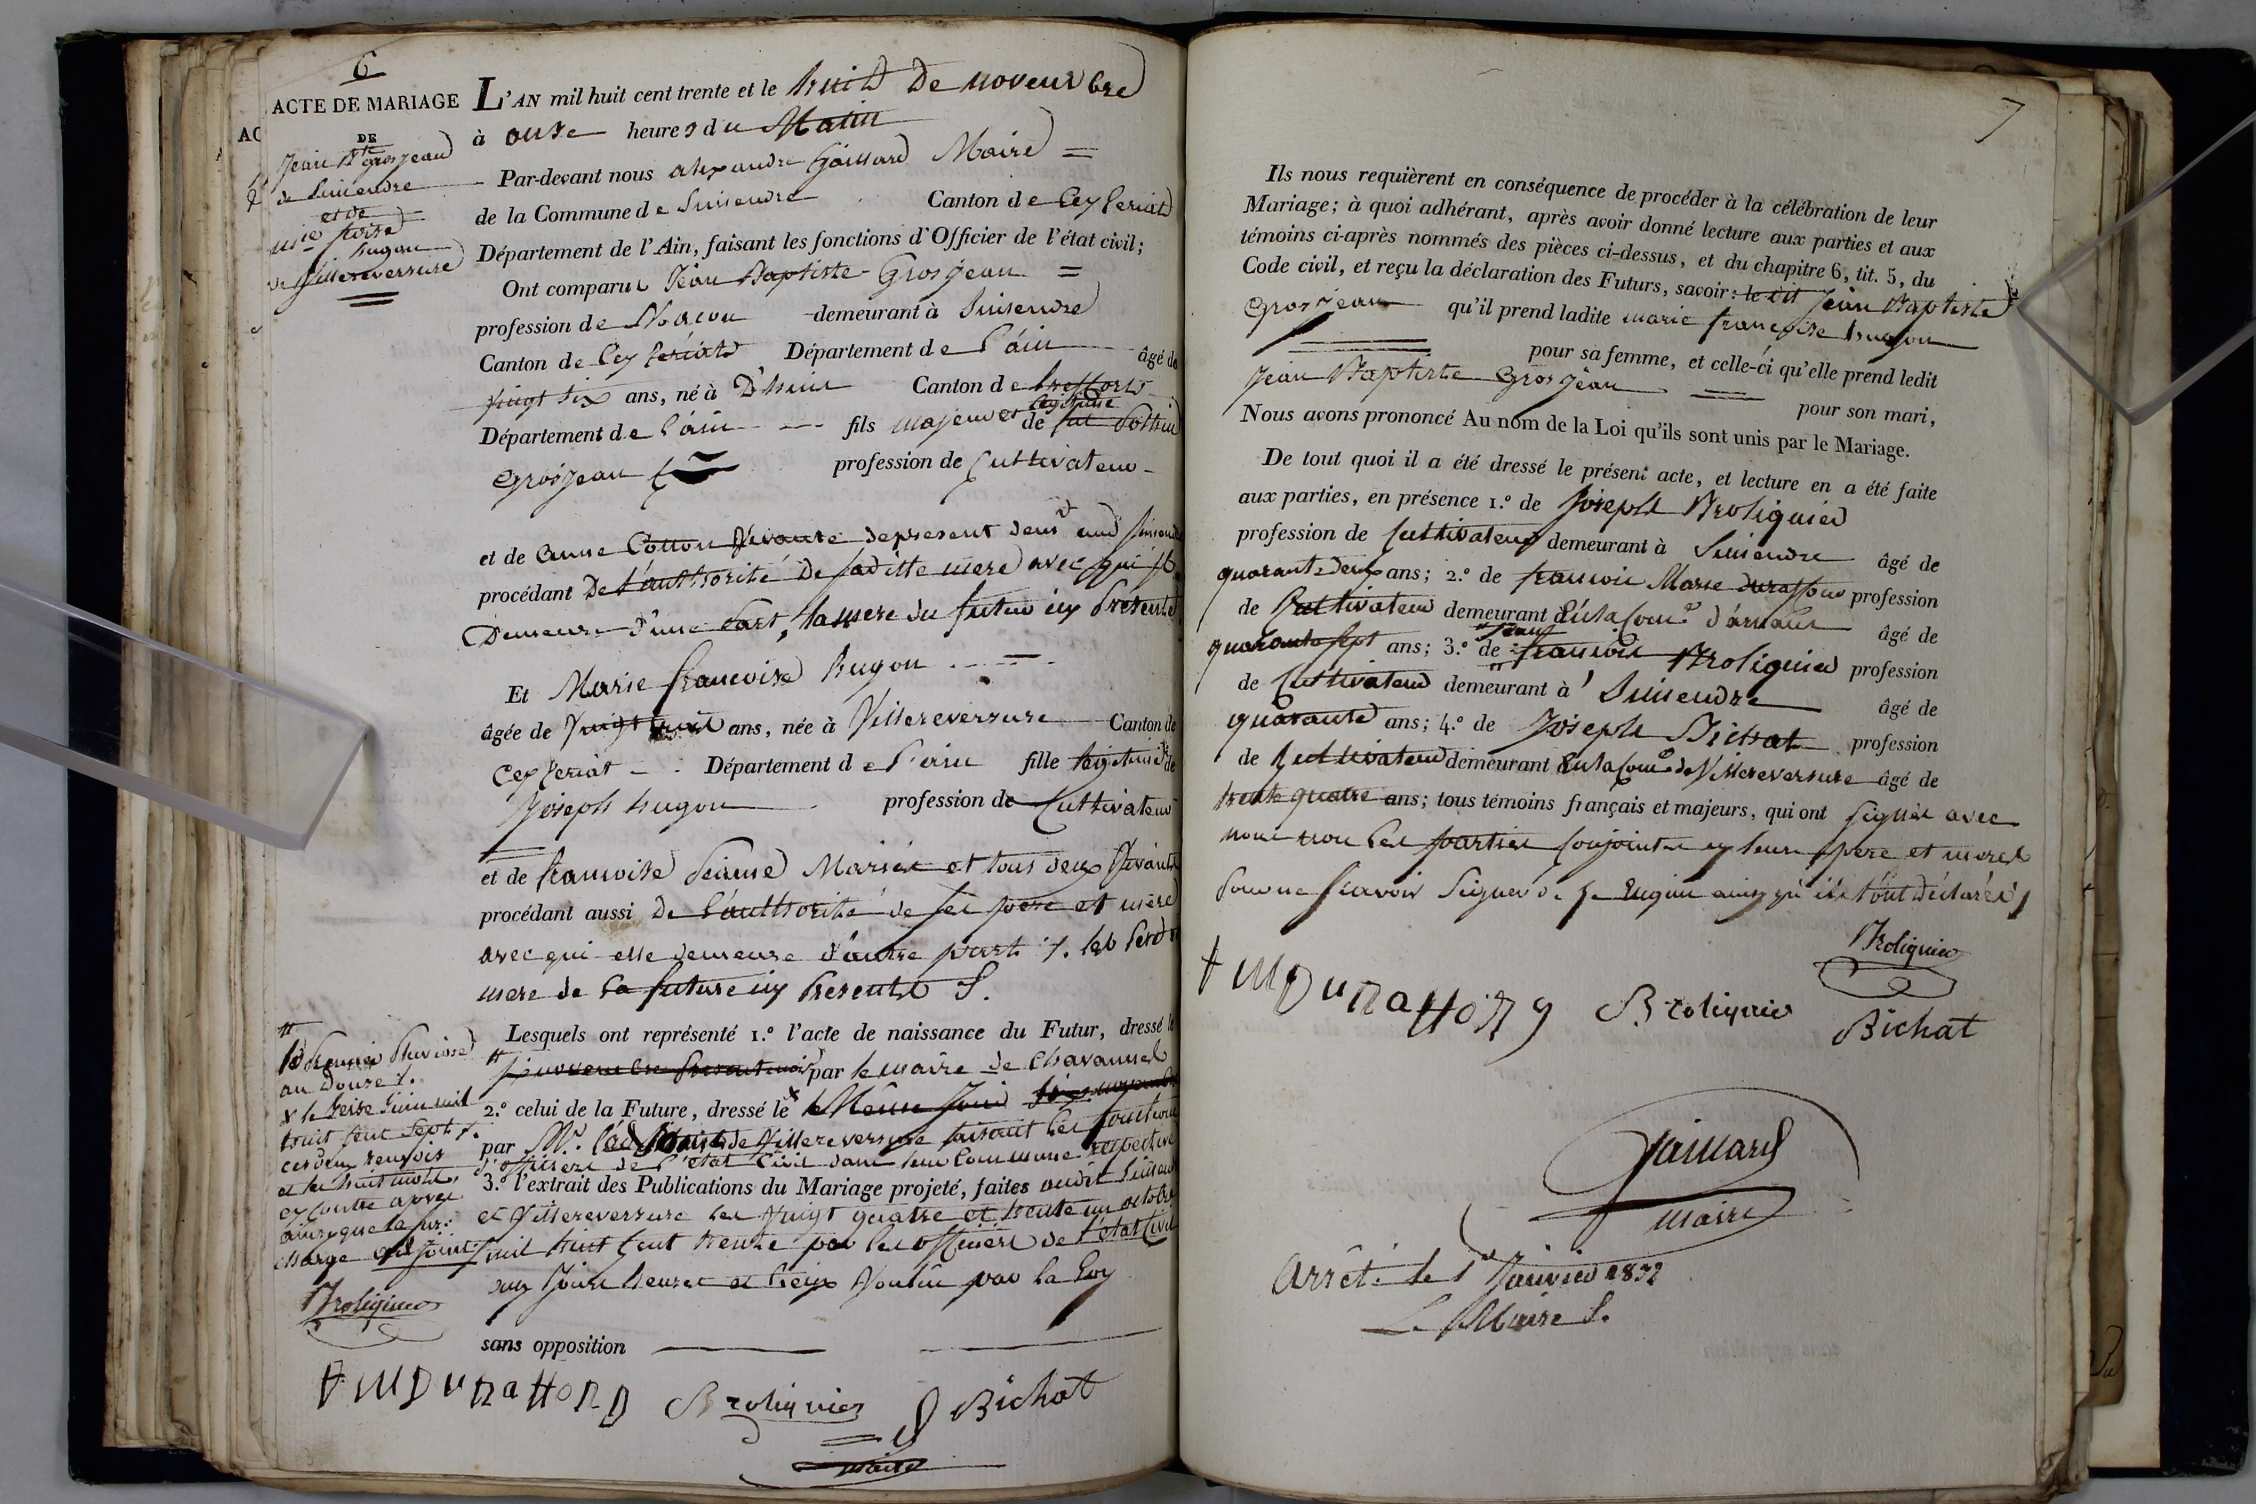 6
ACTE DE MARIAGE
DE
Jean Bte grosjean
de Simandre
et de
Mie fçoise
hugon
de Villereversure
L'AN mil huit cent trente et le huit De novembre
à onse heures du Matin
Par-devant nous alexandre Gaillard Maire =
de la Commune de Simendre Canton de Ceyzeriat
Département de l'Ain, faisant les fonctions d'Officier de l'état civil;
Ont comparut Jean Baptiste Grosjean =
profession de Macon demeurant à Simendre
Canton de Ceyzeriat Département de l'ain âgé de
vingt six ans, né à D'huin Canton de treffort
Département de l'ain fils majeur et legitime de fut
Grosjean profession de Cultivateur
et de Anne Cotton Vivante depresent demt aud Simend
procédant De l'authorité De saditte mere avec qui il
Demeure d'une Part, la mere du futur icy Présente
Et Marie francoise hugon
âgée de vingt trois ans, née à Villereversure Canton de
Ceyzeriat Département de l'ain fille legitime de
Joseph hugon profession de Cultivateur
et de francoise Mariés et tous deux Vivants
procédant aussi De l'authorité de ses pere et mère
avec qui elle demeure d'autre part /. les Perd et
mere de la future icy Présente
Lesquels ont représenté 1.º l'acte de naissance du Futur, dressé le
par le maire de Chavannes
2.º celui de la Future, dressé le
par Mr. de Villereversure faisant les fonctions
d'officiers de l'état Civil dans leur Commune respective
3.º l'extrait des Publications du Mariage projeté, faites audit Simand
et Villereversure les Vingt quatre et trente un octobre
mil huit Cent trente par les officiers de l'état Civil
aux Jours heures et lieux Voulus par la Loy
sans opposition
# le Premier Pluviose
an Douze /.
x le treize Juin mil
huit Cent Sept /.
ces deux renvois
et les huit mots
cy contre apres
ainsy que la sur
charge
Broliquier
fmDurafford Broliquier Bichat
maire
7
Ils nous requièrent en conséquence de procéder à la célébration de leur
Mariage; à quoi adhérant, après avoir donné lecture aux parties et aux
témoins ci-après nommés des pièces ci-dessus, et du chapitre 6, tit. 5, du
Code civil, et reçu la déclaration des Futurs, savoir: le dit Jean Baptiste
Grosjean qu'il prend ladite marie françoise hugon
pour sa femme, et celle-ci qu'elle prend ledit
Jean Baptiste Grosjean pour son mari,
Nous avons prononcé Au nom de la Loi qu'ils sont unis par le Mariage.
De tout quoi il a été dressé le présent acte, et lecture en a été faite
aux parties, en présence 1.º de Joseph Broliquier
profession de Cultivateur demeurant à Simendre âgé de
quarante deux ans; 2.º de francois Marie Duraffour profession
de Cultivateur demeurant En la Come d'arnans âgé de
quarante sept ans; 3.º de Jean francois Broliquier profession
de Cultivateur demeurant à Simendre âgé de
quarante ans; 4.º de Joseph Bichat profession
de Cultivateur demeurant En la Come de Villereversure âgé de
trente quatre ans; tous témoins français et majeurs, qui ont signés avec
nous non les parties Conjointes ny leurs pere et meres
Pour ne scavoir Signer de ce Enquis ainsy qu'ils l'ont déclarés /
Broliquier
fmDuraffong Broliquier
Bichat
Gaillard
maire
Arrêté le 1er Janvier 1831
Le Maire